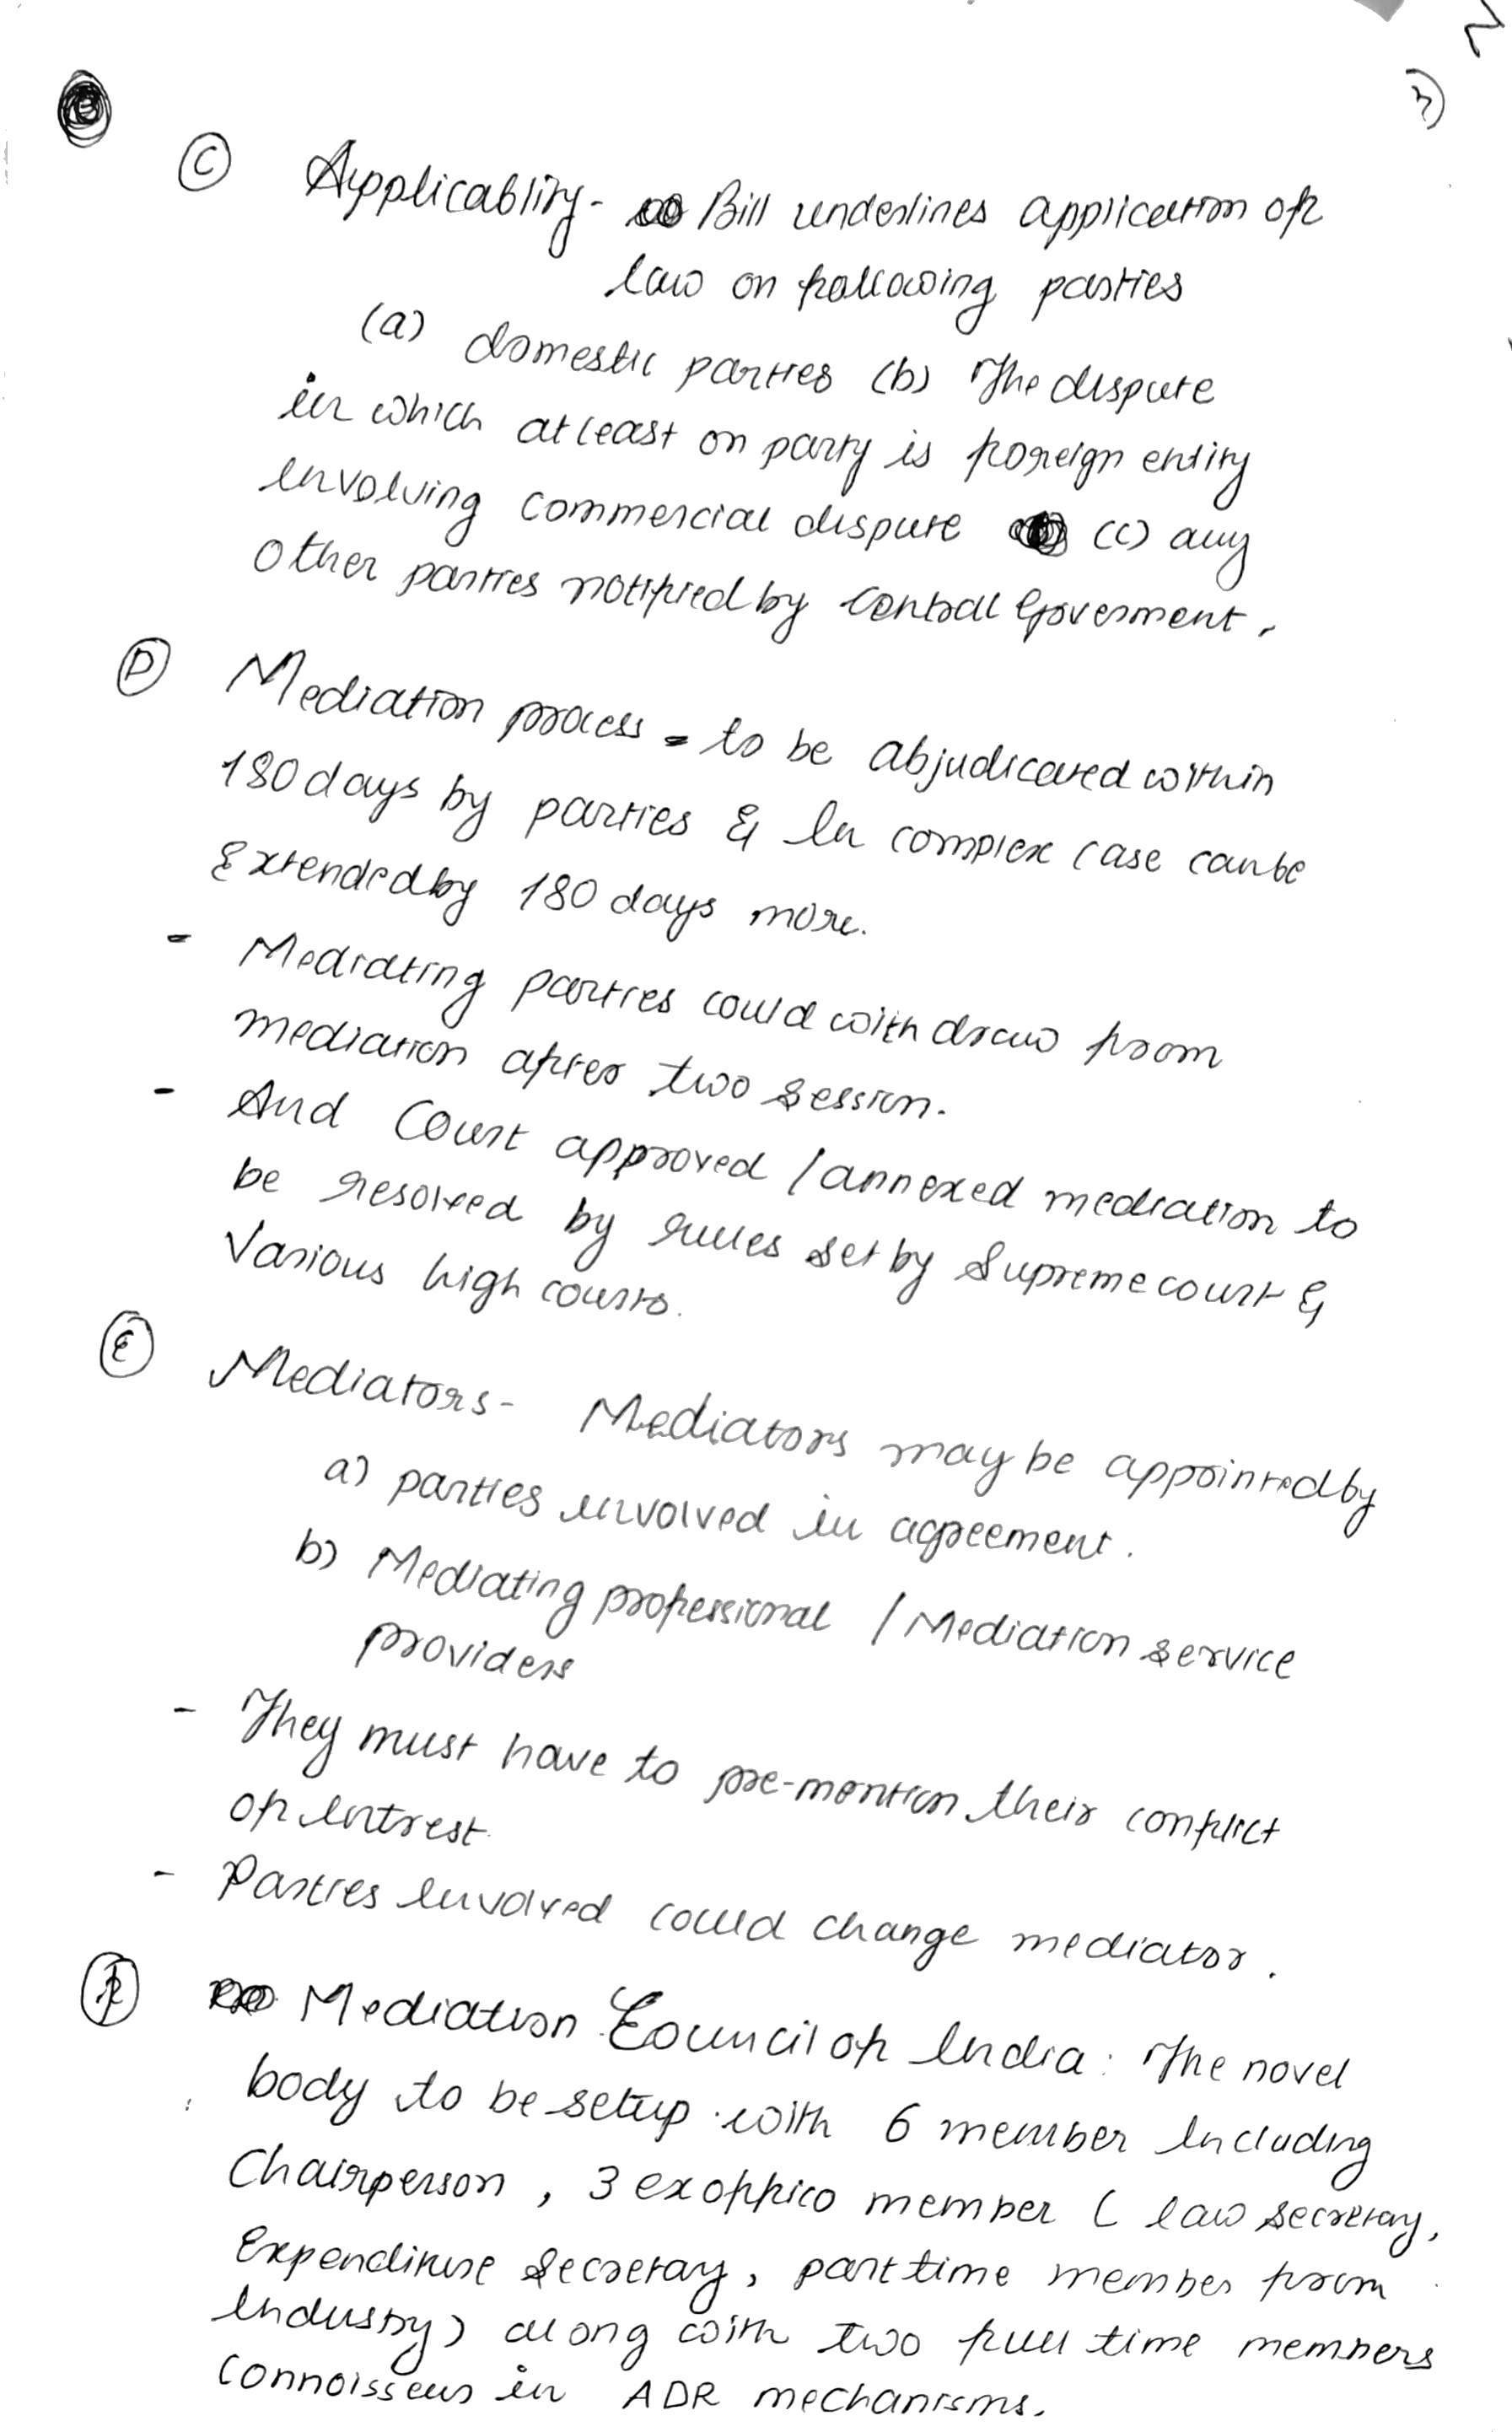 3)
(C) Applicablity - Bill underlines application of
law on following parties
(a) domestic parties (b) The dispute
in which atleast on party is foreign entity
involving commercial dispute (c) any
other parties notified by Central Goverment.
(D) Mediation process - to be abjudicated within
180 days by parties & In complex case can be
Extended by 180 days more.
- Mediating parties could withdraw from
mediation after two session.
- And Court approved / annexed mediation to
be resolved by rules set by Supreme court &
Various high courts.
(E) Mediators - Mediators may be appointed by
a) parties involved in agreement.
b) Mediating professional / Mediation service
providers
- They must have to pre-mention their conflict
of intrest.
- Parties Involved could change mediator.
(F) Mediation Council of India: The novel
body to be setup with 6 member Including
Chairperson, 3 exoffico member ( law secretary,
Expenditure Secretary, part time member from
Industry) along with two full time members
connoisseus in ADR mechanisms.